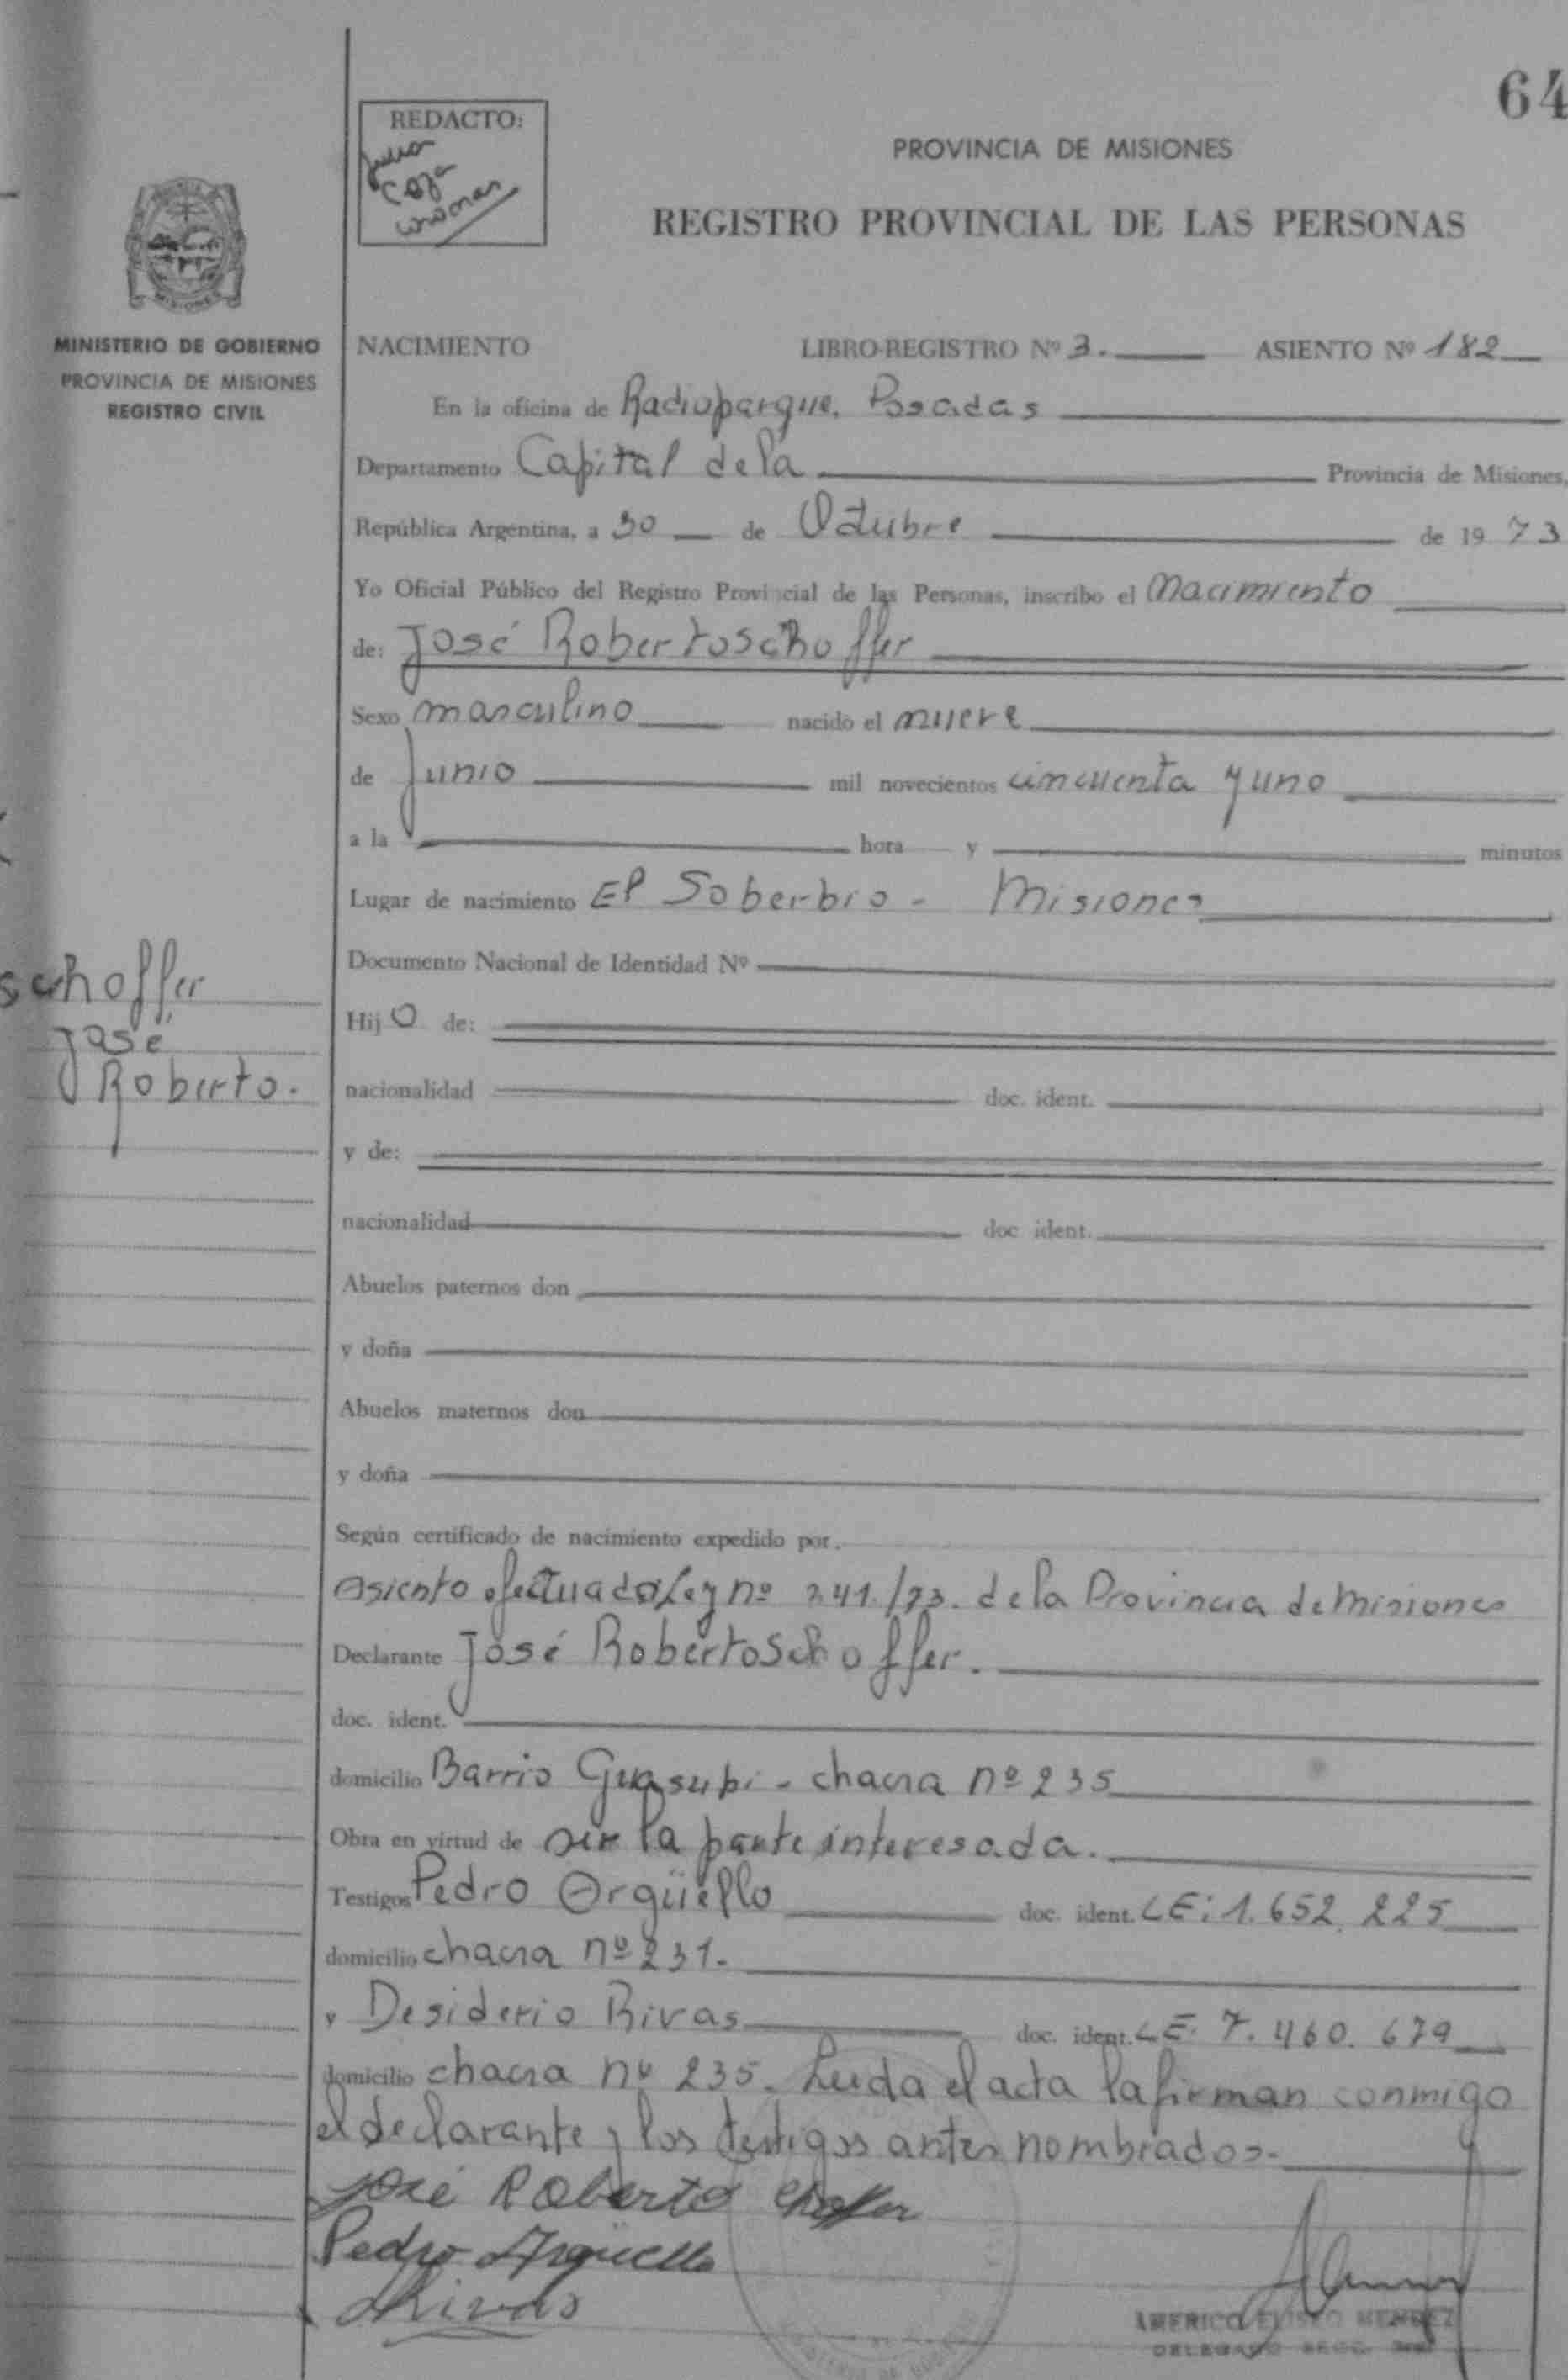 64
REDACTO:
PROVINCIA DE MISIONES
REGISTRO PROVINCIAL DE LAS PERSONAS
MISIONES
MINISTERIO DE GOBIERNO
PROVINCIA DE MISIONES
REGISTRO CIVIL
NACIMIENTO LIBRO-REGISTRO Nº 3. ASIENTO Nº 182
En la oficina de Radioparque. Posadas
Departamento Capital de la Provincia de Misiones,
República Argentina, a 30 de Octubre de 1973
Yo Oficial Público del Registro Provincial de las Personas, inscribo el Nacimiento
de: José Roberto Schoffer
Sexo masculino nacido el nueve
de Junio mil novecientos cincuenta y uno
a la hora y minutos
Lugar de nacimiento El Soberbio - Misiones
Documento Nacional de Identidad Nº
Schoffer
José
Roberto.
Hijo de:
nacionalidad doc. ident.
y de:
nacionalidad doc ident.
Abuelos paternos don
y doña
Abuelos maternos don
y doña
Según certificado de nacimiento expedido por.
Asiento efectuado Ley nº 241/73. de la Provincia de Misiones
Declarante José Roberto Schoffer.
doc. ident.
domicilio Barrio Guasupi - chacra nº 235
Obra en virtud de ser la parte interesada.
Testigos Pedro Orgüello doc. ident. LE: 1.652.225
domicilio chacra nº 231.
y Desiderio Rivas doc. ident. LE. 7.460.679
domicilio chacra nº 235. Leida el acta la firman conmigo
el declarante y los testigos antes nombrados.
José Roberto Choffer
Pedro Arguello
Rivas
AMERICO ELISEO MENDEZ
DELEGADO SECC.